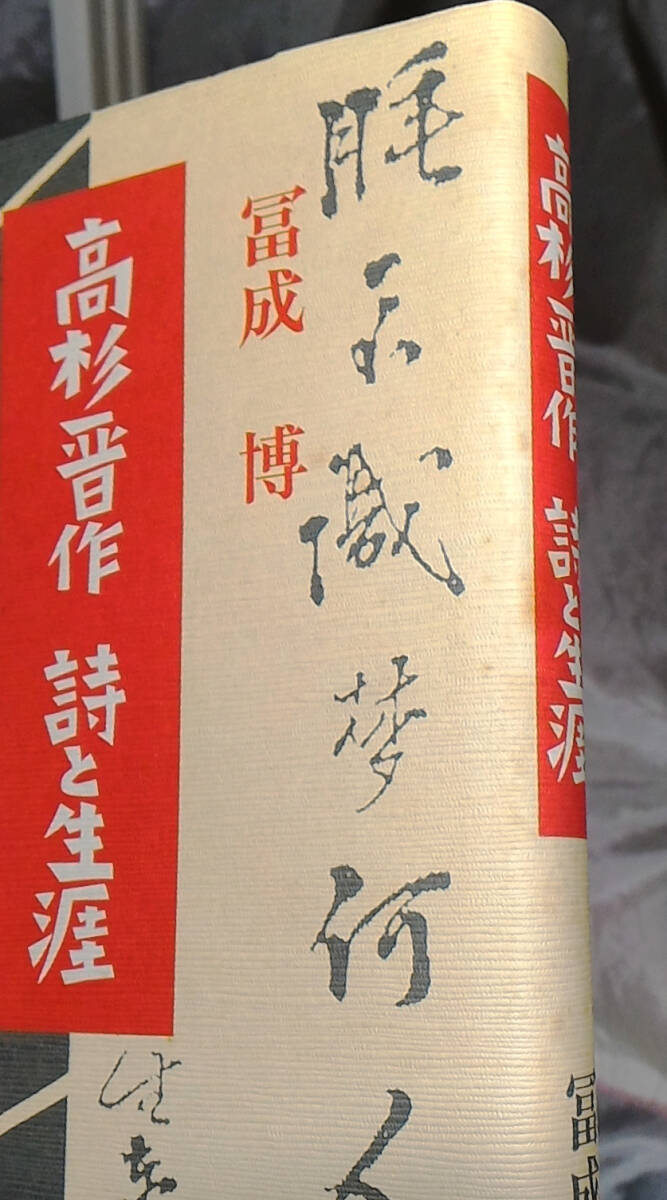 高杉晋作 詩と生涯
冨成
高杉晋作 詩と生涯
冨成 博
不識夢何人